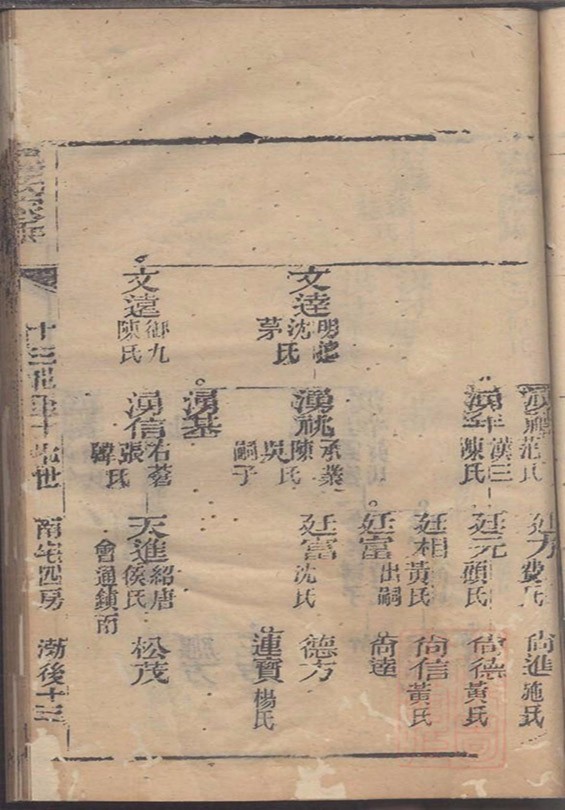 莊氏
尚進
施氏
漢三
陳氏
廷元
頭氏
尚德
黃氏
廷相
黃氏
尚信
黃氏
廷富
出嗣
尚達
文達
沈氏
茅
湧祧
承業
陳氏
吳
嗣子
廷富
沈氏
德方
蓮寶
楊氏
湧基
文遠
御九
陳氏
湧信
右蒼
張氏
韓
天進
紹唐
侯氏
會通鎮南
松茂
十三世至十九世
南宅四房
渤後十三